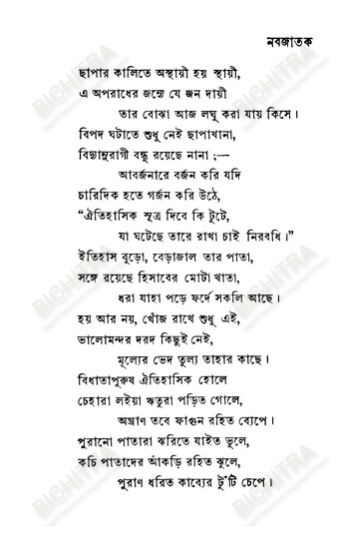 নবজাতক
ছাপার কালিতে অস্থায়ী হয় স্থায়ী,
এ অপরাধের জন্যে যে জন দায়ী
তার বোঝা আজ লঘু করা যায় কিসে।
বিপদ ঘটাতে শুধু নেই ছাপাখানা,
বিদ্যানুরাগী বন্ধু রয়েছে নানা ;—
আবর্জনারে বর্জন করি যদি
চারিদিক হতে গর্জন করি উঠে,
“ঐতিহাসিক সূত্র দিবে কি টুটে,
যা ঘটেছে তারে রাখা চাই নিরবধি।”
ইতিহাস বুড়ো, বেড়াজাল তার পাতা,
সঙ্গে রয়েছে হিসাবের মোটা খাতা,
ধরা যাহা পড়ে ফর্দে সকলি আছে।
হয় আর নয়, খোঁজ রাখে শুধু এই,
ভালোমন্দর দরদ কিছুই নেই,
মূল্যের ভেদ তুল্য তাহার কাছে।
বিধাতাপুরুষ ঐতিহাসিক হোলে
চেহারা লইয়া ঋতুরা পড়িত গোলে,
অঘ্রাণ তবে ফাগুন রহিত ব্যেপে।
পুরানো পাতারা ঝরিতে যাইত ভুলে,
কচি পাতাদের আঁকড়ি রহিত ঝুলে,
পুরাণ ধরিত কাব্যের টুঁটি চেপে।
BICHITRA
BICHITRA
BICHITRA
BICHITRA
BICHITRA
BICHITRA